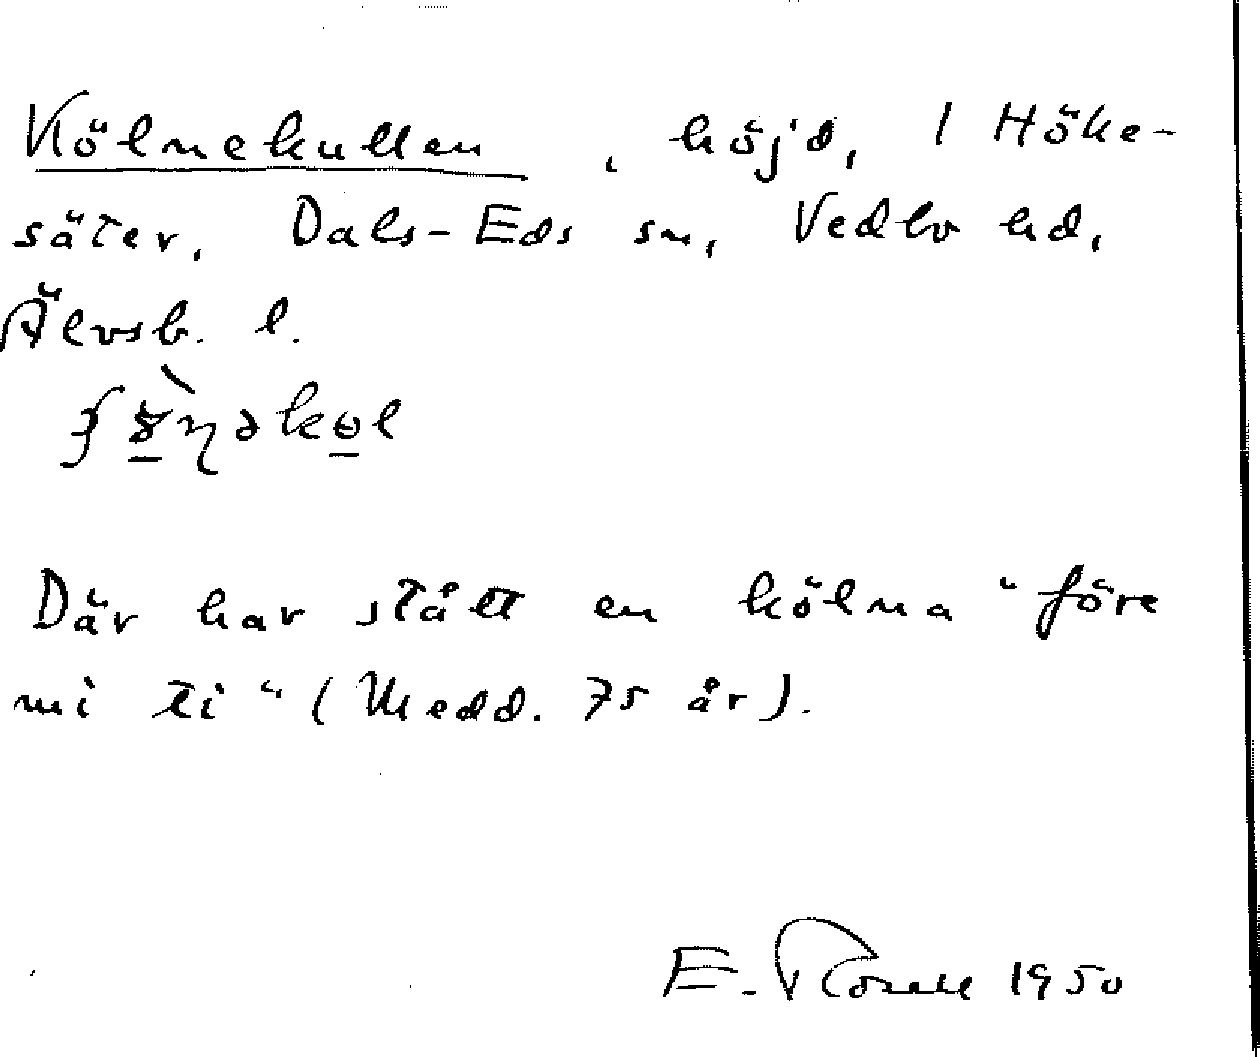 Kölnekullen, höjd, 1 Höke-
säter, Dals-Eds sn, Vedbo hd,
Älvsb. l.
Där har stått en kölna "före
mi ti" (Medd. 75 år).
E. Rosell 1950